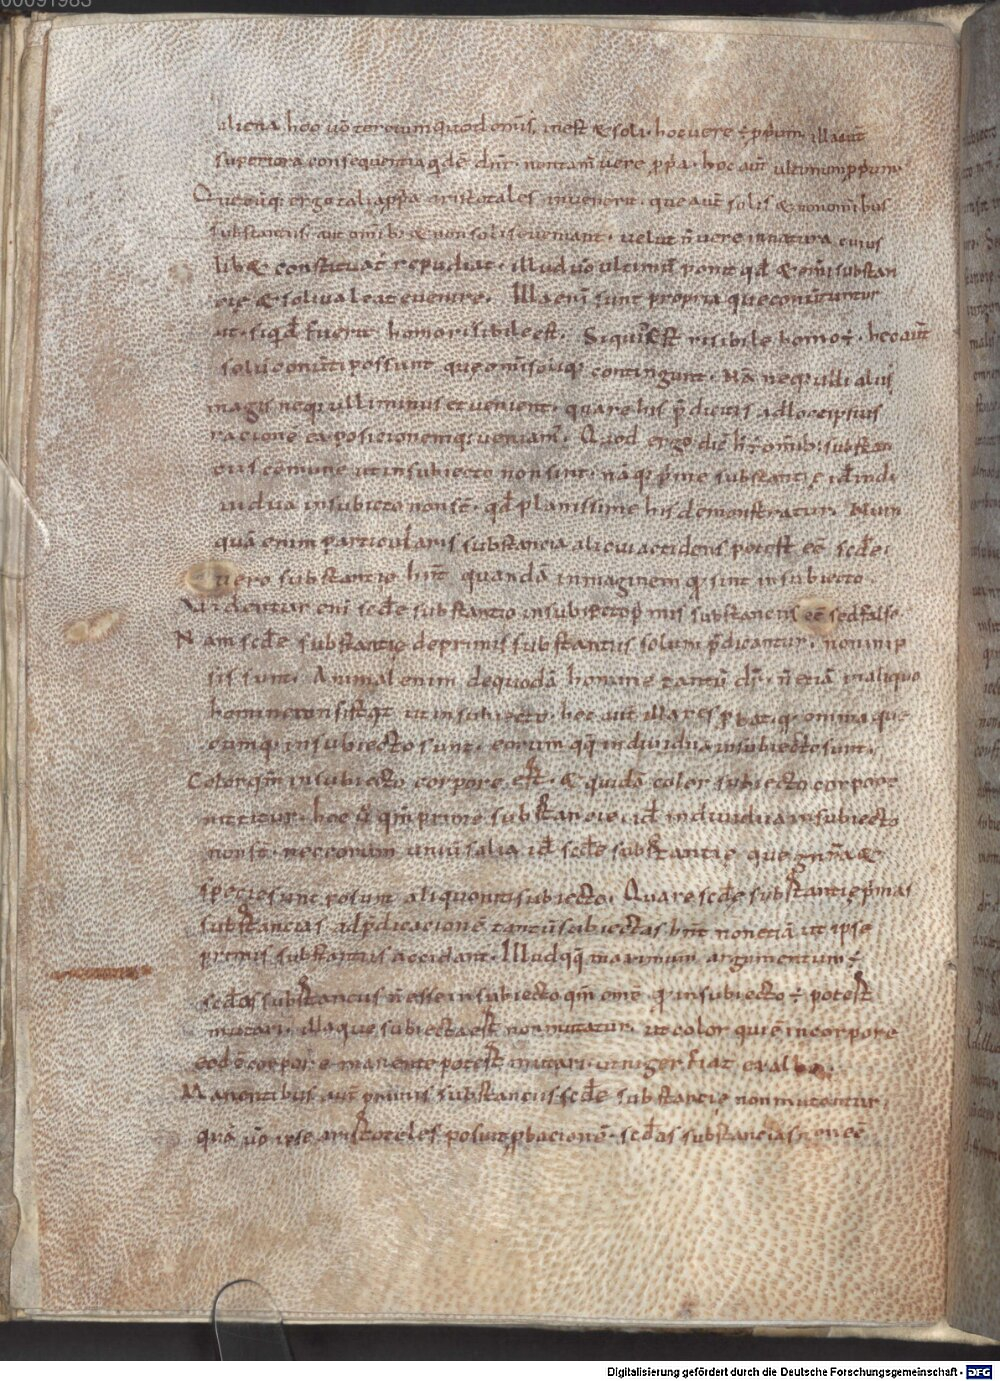 00091983
aliena hoc uō tertium quod enis inest & soli. hoc uere ÷ ꝓpriū. illa aūt
superiora consequentia qdē dnr̄. non tam̄ uere ꝓpa. hoc aūt ultimum ꝓpium
Quecūq; ergo talia ꝓpa aristotales inuenerit. que aūt solis & non om̄ibus
substantiis aut om̄ib; & non solis eueniant. uelut n̄ uere in natura cuius
lib& constituat repudiat. illud uō ultimū ponit qd & om̄i substan
cie & soli ualeat euenire. Illa enī sunt propria que conuertuntur
ut. siqd fuerit homo risibile est. Si quid est risibile homo ÷. hec aūt
sola conuerti possunt que om̄i specieq; contingunt. Nā neq; ulli alii
magis neq; ulli minus euenient. quare his p̄dictis ad loci ipsius
racionē exposicionemq; ueniam̄. Quod ergo dic̄ h ÷ om̄ib; substan
ciis comune ut in subiecto non sint. nāq; p̄me substantię id indi
uidua in subiecto non st̄. qd planissime his demonstratur. Num
quā enim particularis substancia alicui accidens potest eē scd̄e
uero substantie hn̄t quandā inmaginem q̄ sint in subiecto.
Videntur enī scd̄e substantie in subiecto p̄mis substanciis eē sed false.
Nam scd̄e substantię de primis substantiis solum p̄dicantur. non in ip
sis sunt. Animal enim de quodā homine tantū dr̄. n̄ etiā in aliquo
homine consistit ut in subiecto. hec aūt illa res ꝓbat. q; omnia que
cumq; in subiecto sunt. eorum qq; indiuidua in subiecto sunt.
Color qm̄ in subiecto corpore est. & quidā color subiecto corpore
nititur. hoc u qm̄ prime substancie. id indiuidua in subiecto
non st̄. nec eorum uniuersalia id scd̄e substantię que gn̄ra &
species sunt possunt aliquo niti subiecto. Quare scd̄e substantię p̄mas
substancias ad p̄dicacionē tantū subiectas hnt non etiā ut ipse
primis substantiis accidant. Illud qq; maximum argumentum ÷
scd̄as substancias n̄ esse in subiecto qm̄ om̄e q̄ in subiecto ÷ potest
mutari. illa que subiecta est non mutatur. ut color qui ē in corpore
eodē corpore manente potest mutari. ut niger fiat ex albo.
Manentibus aūt primis substanciis scd̄e substantię non mutantur.
quā uō ipse aristoteles posuit ꝓbacionē. scd̄as substancias non eē
Digitalisierung gefördert durch die Deutsche Forschungsgemeinschaft - DFG